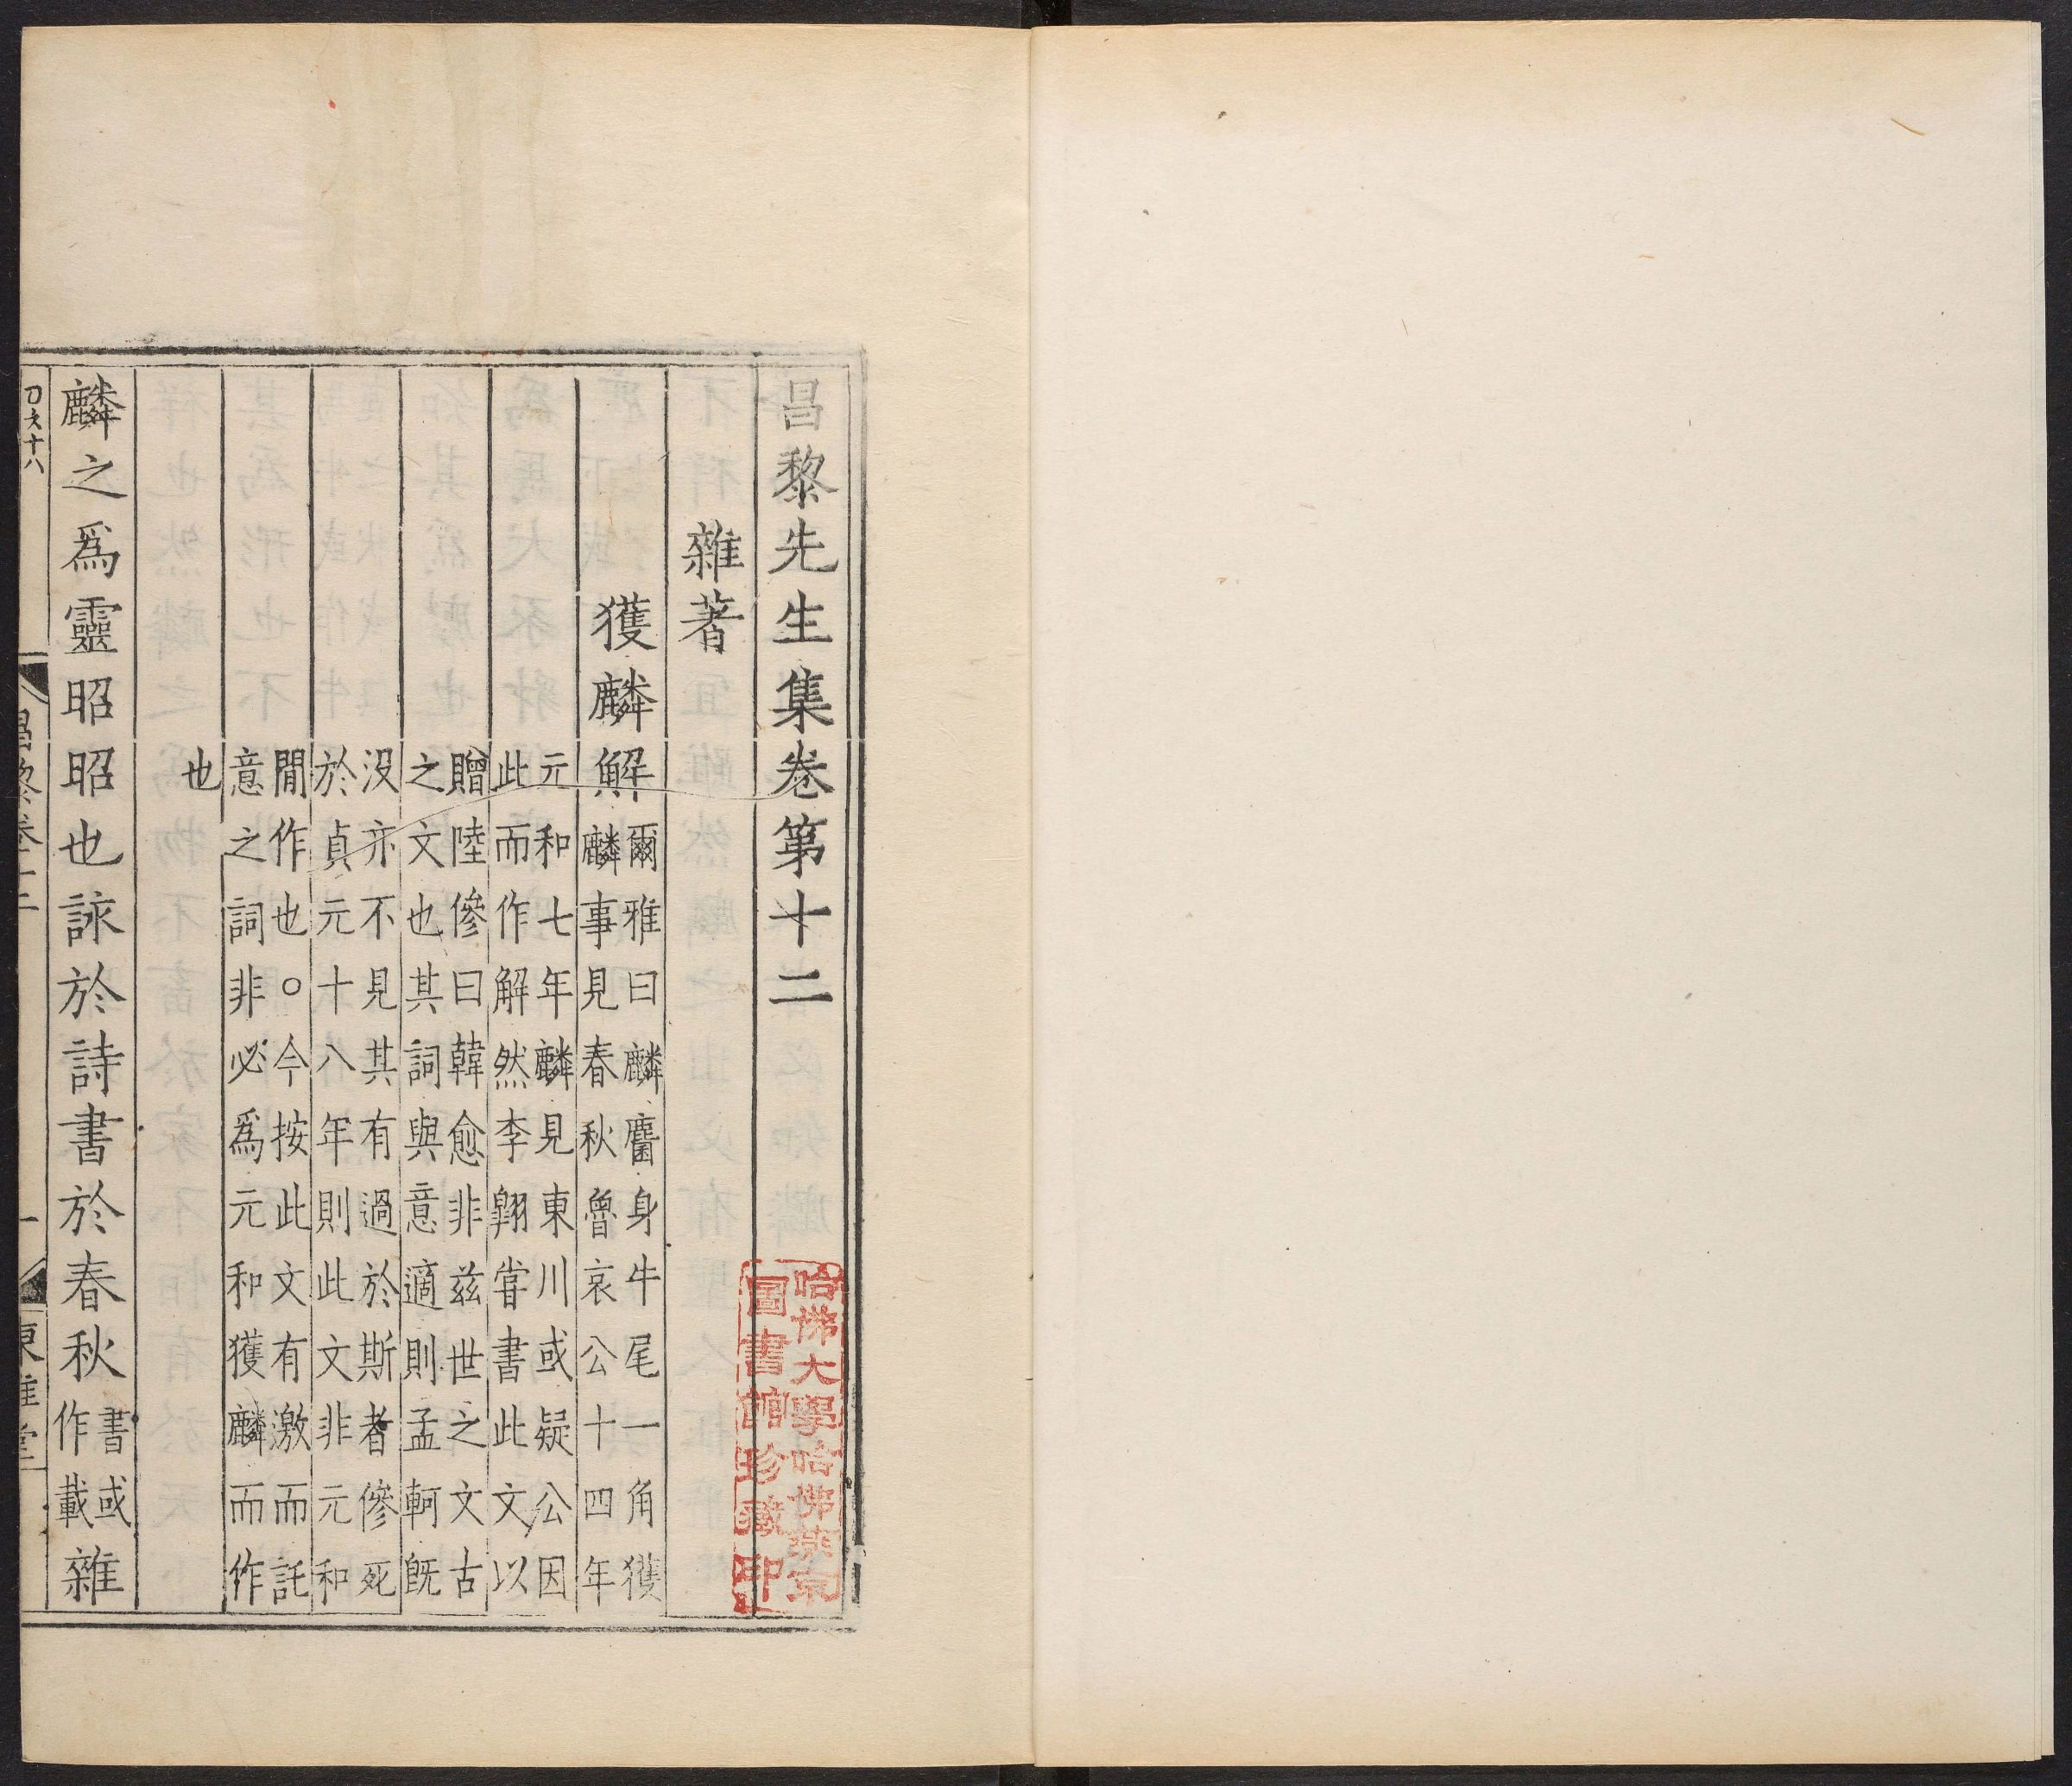 昌黎先生集卷第十二
雜著
獲麟解
爾雅曰麟麕身牛尾一角獲
麟事見春秋魯哀公十四年
元和七年麟見東川或疑公因
此而作解然李翺甞書此文以
贈陸傪曰韓愈非兹世之文古
之文也其詞與意適則孟軻旣
没亦不見其有過於斯者傪死
於貞元十八年則此文非元和
閒作也○今按此文有激而託
意之詞非必爲元和獲麟而作
也
麟之爲靈昭昭也詠於詩書於春秋
書或
作載
雜
昌黎卷十二
一
東雅堂
哈佛大學哈佛燕京
圖書館珍藏印